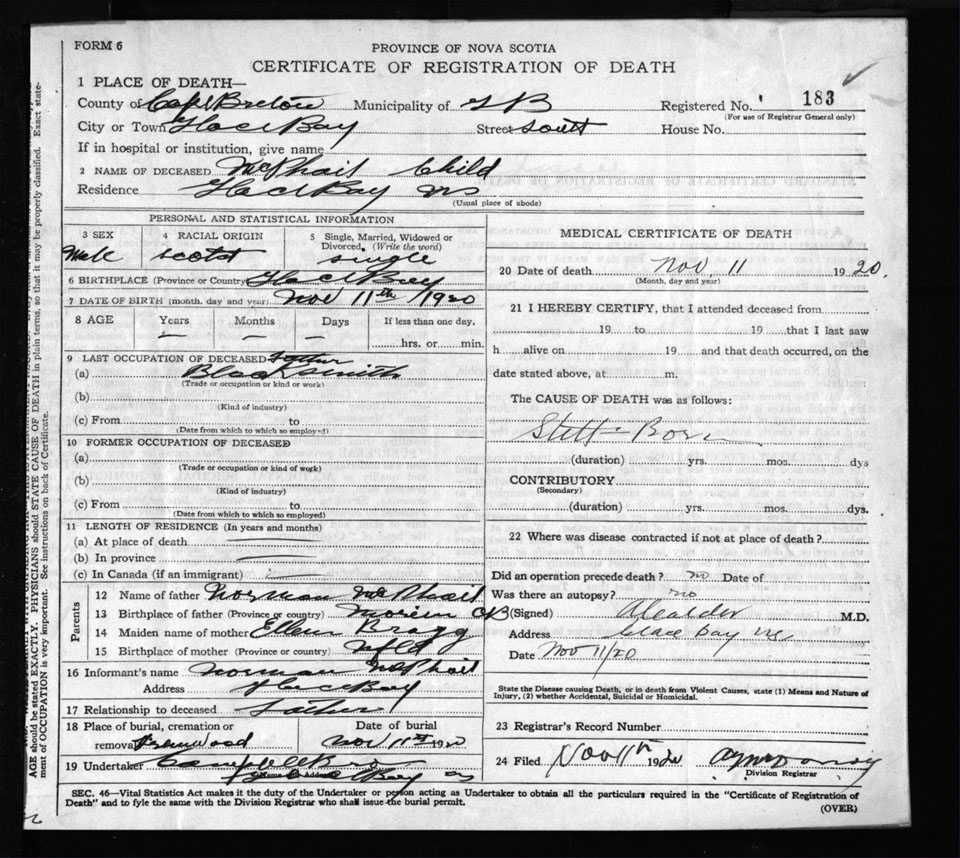 FORM 6
PROVINCE OF NOVA SCOTIA
CERTIFICATE OF REGISTRATION OF DEATH
1 PLACE OF DEATH—
County of Cape Breton Municipality of G B Registered No. 183
(For use of Registrar General only)
City or Town Glace Bay Street South House No.
If in hospital or institution, give name
2 NAME OF DECEASED McPhail Child
Residence Glace Bay NS
(Usual place of abode)
PERSONAL AND STATISTICAL INFORMATION
3 SEX 4 RACIAL ORIGIN 5 Single, Married, Widowed or Divorced, (Write the word)
Male Scotch single
6 BIRTHPLACE (Province or Country) Glace Bay
7 DATE OF BIRTH (month, day and year) Nov 11th /1920
8 AGE Years Months Days If less than one day,
— — — hrs. or min.
9 LAST OCCUPATION OF DECEASED Father
(a) Blacksmith
(Trade or occupation or kind or work)
(b)
(Kind of industry)
(c) From to
(Date from which to which so employed)
10 FORMER OCCUPATION OF DECEASED
(a)
(Trade or occupation or kind of work)
(b)
(Kind of industry)
(c) From to
(Date from which to which so employed)
11 LENGTH OF RESIDENCE (In years and months)
(a) At place of death
(b) In province
(c) In Canada (if an immigrant)
Parents
12 Name of father Norman McPhail
13 Birthplace of father (Province or country) Morien CB
14 Maiden name of mother Ellen Bragg
15 Birthplace of mother (Province or country) Nfld
16 Informant's name Norman McPhail
Address Glace Bay
17 Relationship to deceased Father
18 Place of burial, cremation or removal Greenwood
Date of burial Nov 11th 1920
19 Undertaker Campbell
(Name and Address) Glace Bay NS
MEDICAL CERTIFICATE OF DEATH
20 Date of death Nov, 11 1920.
(Month, day and year)
21 I HEREBY CERTIFY, that I attended deceased from
19 to 19 that I last saw
h alive on 19 and that death occurred, on the
date stated above, at m.
The CAUSE OF DEATH was as follows:
Still-Born
(duration) yrs. mos. dys
CONTRIBUTORY
(Secondary)
(duration) yrs. mos. dys.
22 Where was disease contracted if not at place of death?
Did an operation precede death? no Date of
Was there an autopsy? no
(Signed) M.D.
Address Glace Bay NS
Date Nov 11/20
State the Disease causing Death, or in death from Violent Causes, state (1) Means and Nature of
Injury, (2) whether Accidental, Suicidal or Homicidal.
23 Registrar's Record Number
24 Filed Nov 11th 1920
Division Registrar
SEC. 46—Vital Statistics Act makes it the duty of the Undertaker or person acting as Undertaker to obtain all the particulars required in the "Certificate of Registration of
Death" and to fyle the same with the Division Registrar who shall issue the burial permit.
(OVER)
AGE should be stated EXACTLY. PHYSICIANS should STATE CAUSE OF DEATH in plain terms, so that it may be properly classified. Exact state-
ment of OCCUPATION is very important. See instructions on back of Certificate.